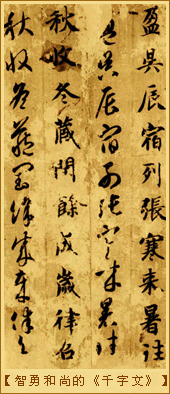 盈昃辰宿列張寒来暑往
盈昃辰宿列張寒来暑往
秋收冬藏閏餘成歲律呂
秋收冬藏閏餘成歲律呂
【智勇和尚的《千字文》】